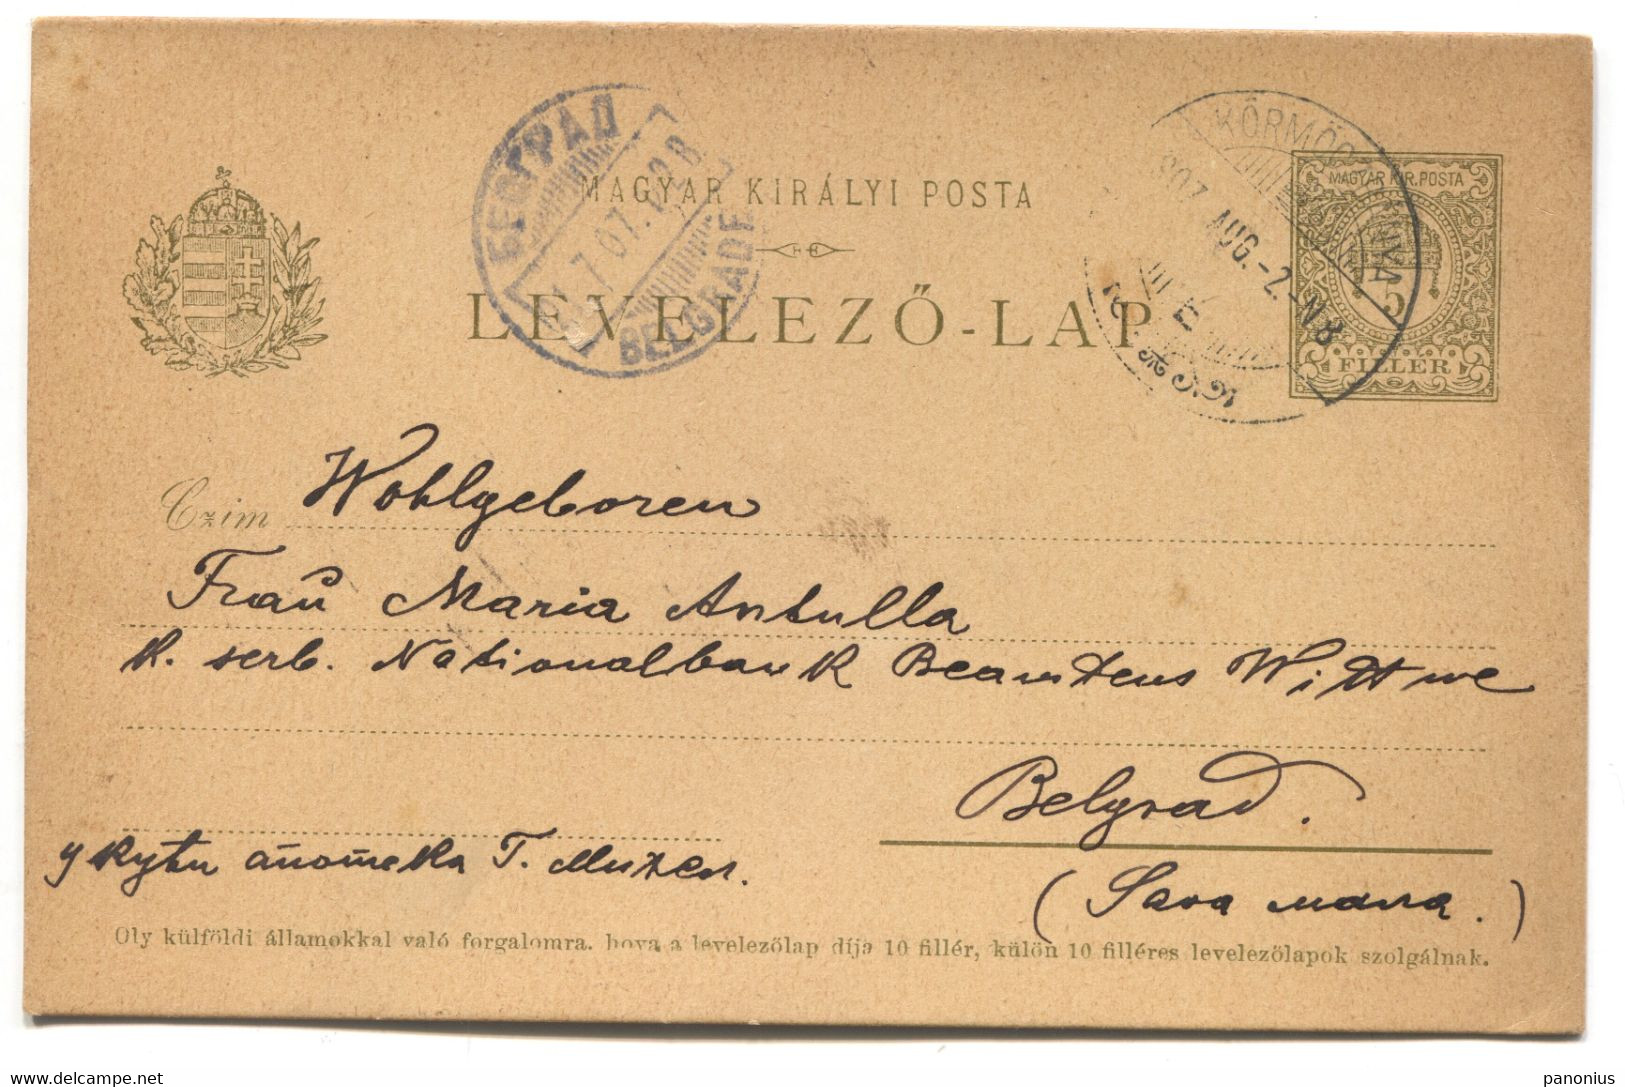 БЕОГРАД
BELGRADE
KÖRMÖCZBÁNYA
907 AUG.-2.-N 8
MAGYAR KIRÁLYI POSTA
MAGYAR KIR. POSTA
5
FILLÉR
LEVELEZŐ-LAP
Czim Wohlgeboren
Frau Maria Antulla
k. serb. Nationalbank Beamtens Wittwe
Belgrad.
у кући апотека Т.
(Sava мала.)
Oly külföldi államokkal való forgalomra, hova a levelezőlap díja 10 fillér, külön 10 filléres levelezőlapok szolgálnak.
www.delcampe.net
panonius